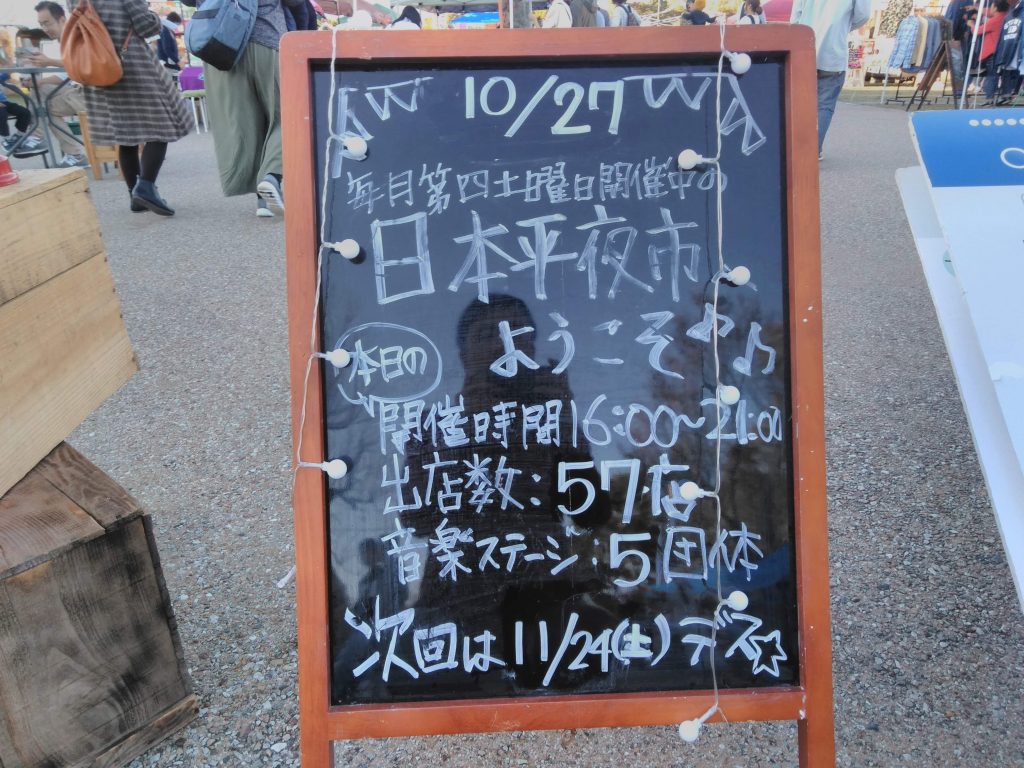 10/27
毎月第四土曜日開催中の
日本平夜市
ようこそ♪♫
本日の
開催時間16:00~21:00
出店数:57店
音楽ステージ:5団体
次回は11/24(土)デス☆